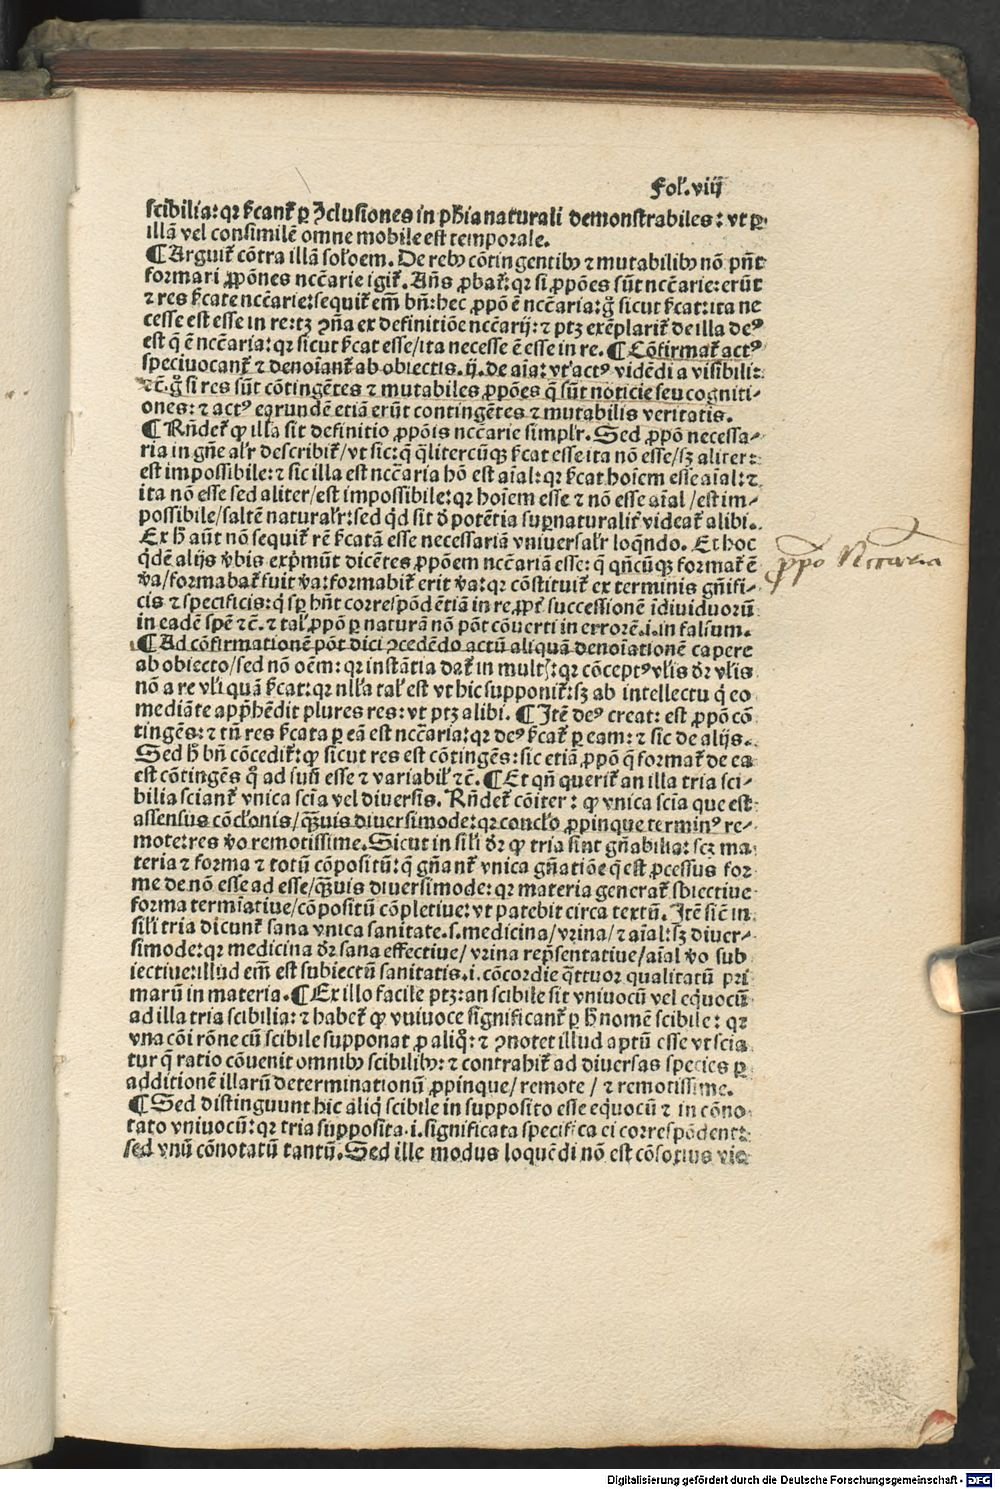 Fol̕.viij
scibilia: qꝛ ſ̕cant̕ ꝑ ꝯcluſiones in ph̕ia naturali demonſtrabiles: vt ꝑ
illã vel conſimilẽ omne mobile eſt temporale.
¶ Arguit̕ cõtra illã ſol̕oem. De rebꝰ cõtingentibꝰ ⁊ mutabilibꝰ nõ pn̄t
formari ꝓpõnes ncc̄arie igit̕. Añs ꝓbat̕: qꝛ ſi ꝓpões ſũt ncc̄arie: erũt
⁊ res ſ̕cate ncc̄arie: ſequit̕ em̄ bñ: hec ꝓpõ ẽ ncc̄aria: g̊ ſicut ſ̕cat: ita ne
ceſſe eſt eſſe in re: tꝫ ꝯña ex definitiõe ncc̄arij: ⁊ ptꝫ exẽplarit̕ de illa deꝰ
eſt q̃ ẽ ncc̄aria: qꝛ ſicut ſ̕cat eſſe/ita neceſſe ẽ eſſe in re. ¶ Cõfirmat̕ actꝰ
ſpeciuocant̕ ⁊ denoĩant̕ ab obiectis. ij. de aĩa: vt̕ actꝰ vidẽdi a viſibili:
⁊c̃. g̊ ſi res ſũt cõtingẽtes ⁊ mutabiles ꝓpões q̃ ſũt noticie ſeu cogniti-
ones: ⁊ actꝰ earundẽ etiã erũt contingẽtes ⁊ mutabilis veritatis.
¶ Rñdet̕ ꝙ illa ſit definitio ꝓpõis ncc̄arie ſimpl̕r. Sed ꝓpõ neceſſa-
ria in gñe al̕r deſcribit̕/vt ſic: q̃ q̃litercũqꝫ ſ̕cat eſſe ita nõ eſſe/ſꝫ aliter:
eſt impoſſibile: ⁊ ſic illa eſt ncc̄aria hõ eſt aĩal: qꝛ ſ̕cat hoĩem eſſe aĩal: ⁊
ita nõ eſſe ſed aliter/eſt impoſſibile: qꝛ hoĩem eſſe ⁊ nõ eſſe aĩal/eſt im-
poſſibile/ſaltẽ natural̕r: ſed qͥd ſit ð potẽtia ſupnaturalit̕ videat̕ alibi.
Ex h̕ aũt nõ ſequit̕ rẽ ſ̕catã eſſe neceſſariã vniuerſal̕r loq̃ndo. Et hoc
qͥdẽ alijs v̕bis exp̃mũt dicẽtes ꝓpõem ncc̄ariã eſſe: q̃ qñcũqꝫ format̕ ẽ
v̕a/formabat̕ fuit v̕a: formabit̕ erit v̕a: qꝛ cõſtituit̕ ex terminis gñifi-
cis ⁊ ſpecificis: q̃ ſp̱ hñt correſpõdẽtiã in re, ꝓpt̕ ſucceſſionẽ ĩdiuiduorũ
in eadẽ ſpẽ ⁊c̃. ⁊ tal̕ ꝓpõ ꝑ naturã nõ põt cõuerti in errorẽ .i. in falſum.
¶ Ad cõfirmationẽ põt dici ꝯcedẽdo actũ aliquã denoĩationẽ capere
ab obiecto/ſed nõ oẽm: qꝛ inſtãtia dat̕ in multꝭ: qꝛ cõceptꝰ vl̕is dr̃ vl̕is
nõ a re vl̕i quã ſ̕cat: qꝛ nll̕a tal̕ eſt vt hic ſupponit̕: ſꝫ ab intellectu q̃ eo
mediãte app̃hẽdit plures res: vt ptꝫ alibi. ¶ Itẽ deꝰ creat: eſt ꝓpõ cõ
tingẽs: ⁊ tñ res ſ̕cata ꝑ eã eſt ncc̄aria: qꝛ deꝰ ſ̕cat̕ ꝑ eam: ⁊ ſic de alijs.
Sed h̕ bñ cõcedit̕: ꝙ ſicut res eſt cõtingẽs: ſic etiã, ꝓpõ q̃ format̕ de ea
eſt cõtingẽs q̊ ad ſuũ eſſe ⁊ variabil̕ ⁊c̃. ¶ Et qñ querit̕ an illa tria ſci-
bilia ſciant̕ vnica ſcĩa vel diuerſis. Rñdet̕ cõiter: ꝙ vnica ſcĩa que eſt
aſſenſus cõcl̕onis/q̃uis diuerſimode: qꝛ concl̕o ꝓpinque terminꝰ re-
mote: res v̕o remotiſſime. Sicut in ſil̕i dr̃ ꝙ tria ſint gñabilia: ſcꝫ ma
teria ⁊ forma ⁊ totũ cõpoſitũ: q̃ gñant̕ vnica gñatiõe q̃ eſt ꝓceſſus for
me de nõ eſſe ad eſſe/q̃uis diuerſimode: qꝛ materia generat̕ ſbiectiue
forma termĩatiue/cõpoſitũ cõpletiue: vt patebit circa textũ. Itẽ ſic̃ in
ſil̕i tria dicunt̕ ſana vnica ſanitate .ſ. medicina/vꝛina/⁊ aĩal: ſꝫ diuer-
ſimode: qꝛ medicina dr̃ ſana effectiue/vꝛina rep̃ſentatiue/aĩal v̕o ſub
iectiue: illud em̄ eſt ſubiectũ ſanitatis .i. cõcordie q̃ttuor qualitatũ pri
marũ in materia. ¶ Ex illo facile ptꝫ: an ſcibile ſit vniuocũ vel equocũ
ad illa tria ſcibilia: ⁊ habet̕ ꝙ vniuoce ſignificant̕ ꝑ h̕ nomẽ ſcibile: qꝛ
vna cõi rõne cũ ſcibile ſupponat ꝓ aliq̊: ⁊ ꝯnotet illud aptũ eſſe vt ſcia
tur q̃ ratio cõuenit omnibꝰ ſcibilibꝰ: ⁊ contrahit̕ ad diuerſas ſpecies ꝑ
additionẽ illarũ determinationũ ꝓpinque/remote/⁊ remotiſſime.
¶ Sed diſtinguunt hic aliq̃ ſcibile in ſuppoſito eſſe equocũ ⁊ in cõno
tato vniuocũ: qꝛ tria ſuppoſita .i. ſignificata ſpecifica ei correſpõdent:
ſed vnũ cõnotatũ tantũ. Sed ille modus loquẽdi nõ eſt cõſonus vie
ꝓpõ Nccaria
Digitalisierung gefördert durch die Deutsche Forschungsgemeinschaft - DFG